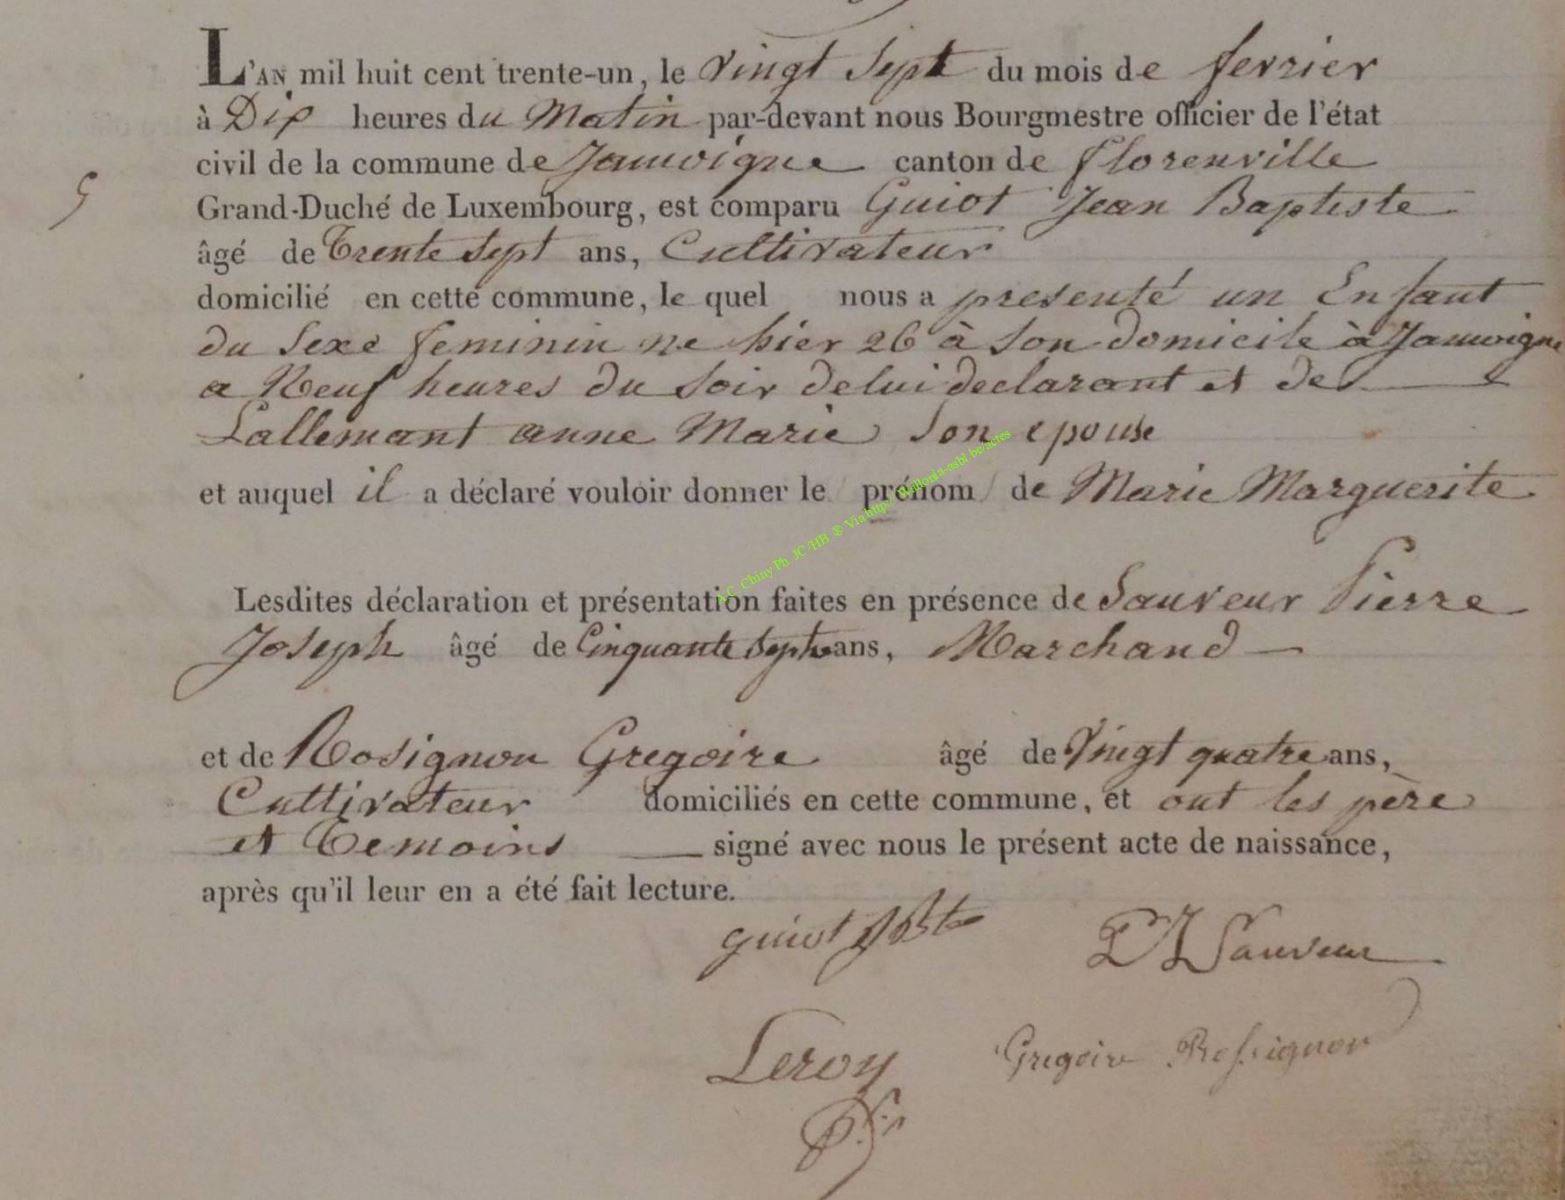 L'AN mil huit cent trente-un, le vingt sept du mois de fevrier
à Dix heures du Matin par-devant nous Bourgmestre officier de l'état
civil de la commune de Jamoigne canton de florenville
5
Grand-Duché de Luxembourg, est comparu Guiot Jean Baptiste
âgé de Trente Sept ans, Cultivateur
domicilié en cette commune, le quel nous a presenté un Enfant
du Sexe feminin ne hier 26 à son domicile à Jamoigne
a Neuf heures du Soir de lui declarant et de
Lallemant anne Marie Son epouse
et auquel il a déclaré vouloir donner le prénom de Marie Marguerite
A.C. Chiny Ph. JC/HB ® Via http://Wallonia-asbl.be/actes
Lesdites déclaration et présentation faites en présence de Sauveur Pierre
Joseph âgé de Cinquante Sept ans, Marchand
et de Rosignon Gregoire âgé de Vingt quatre ans,
Cultivateur domiciliés en cette commune, et ont les père
et Temoins signé avec nous le présent acte de naissance,
après qu'il leur en a été fait lecture.
guiot JBte PJ Sauveur
Leroy Gregoire Rossignon